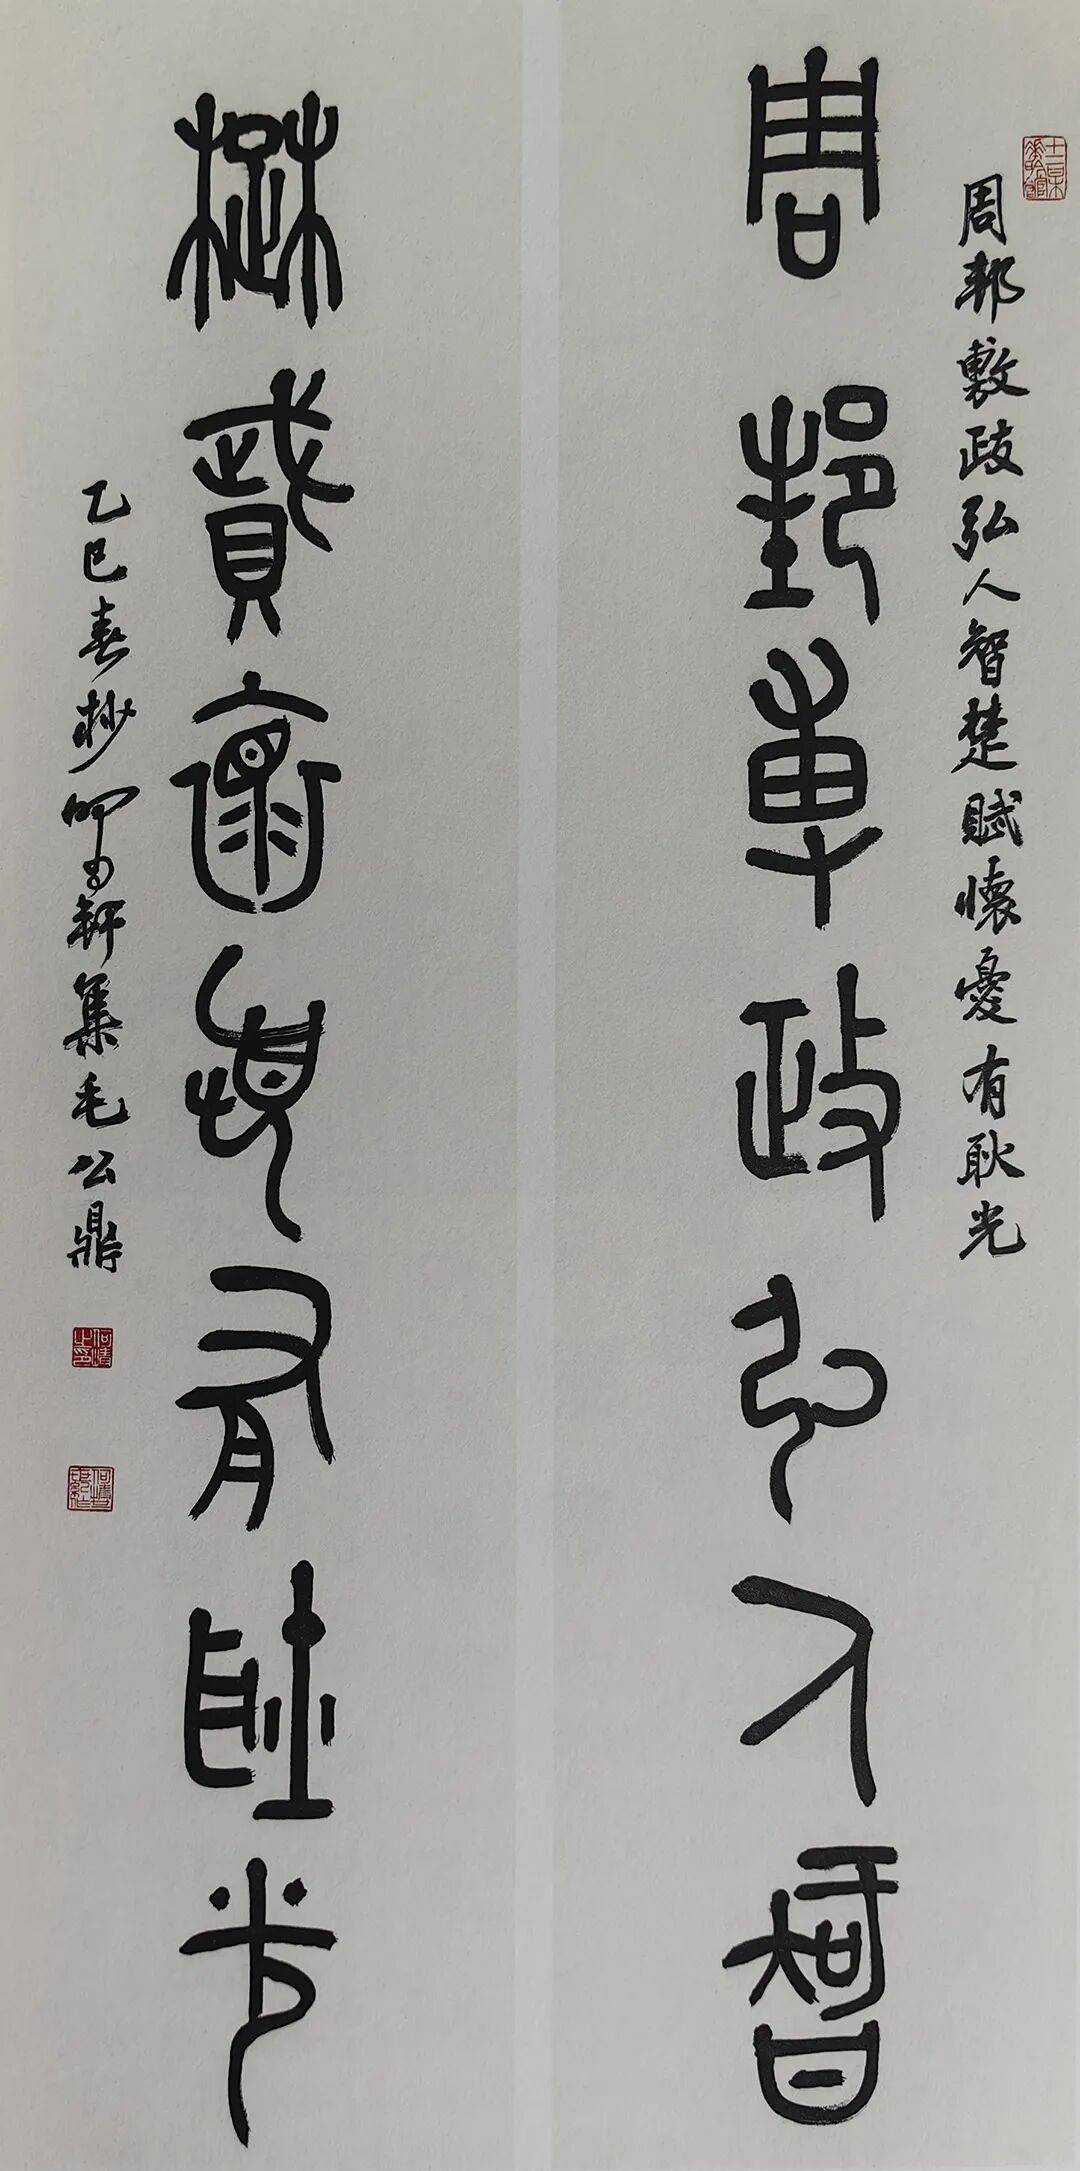 周邦敷政弘人智楚賦懷憂有耿光
周邦尃政弘人智
楚賦懷憂有耿光
乙巳春抄 軒集毛公鼎